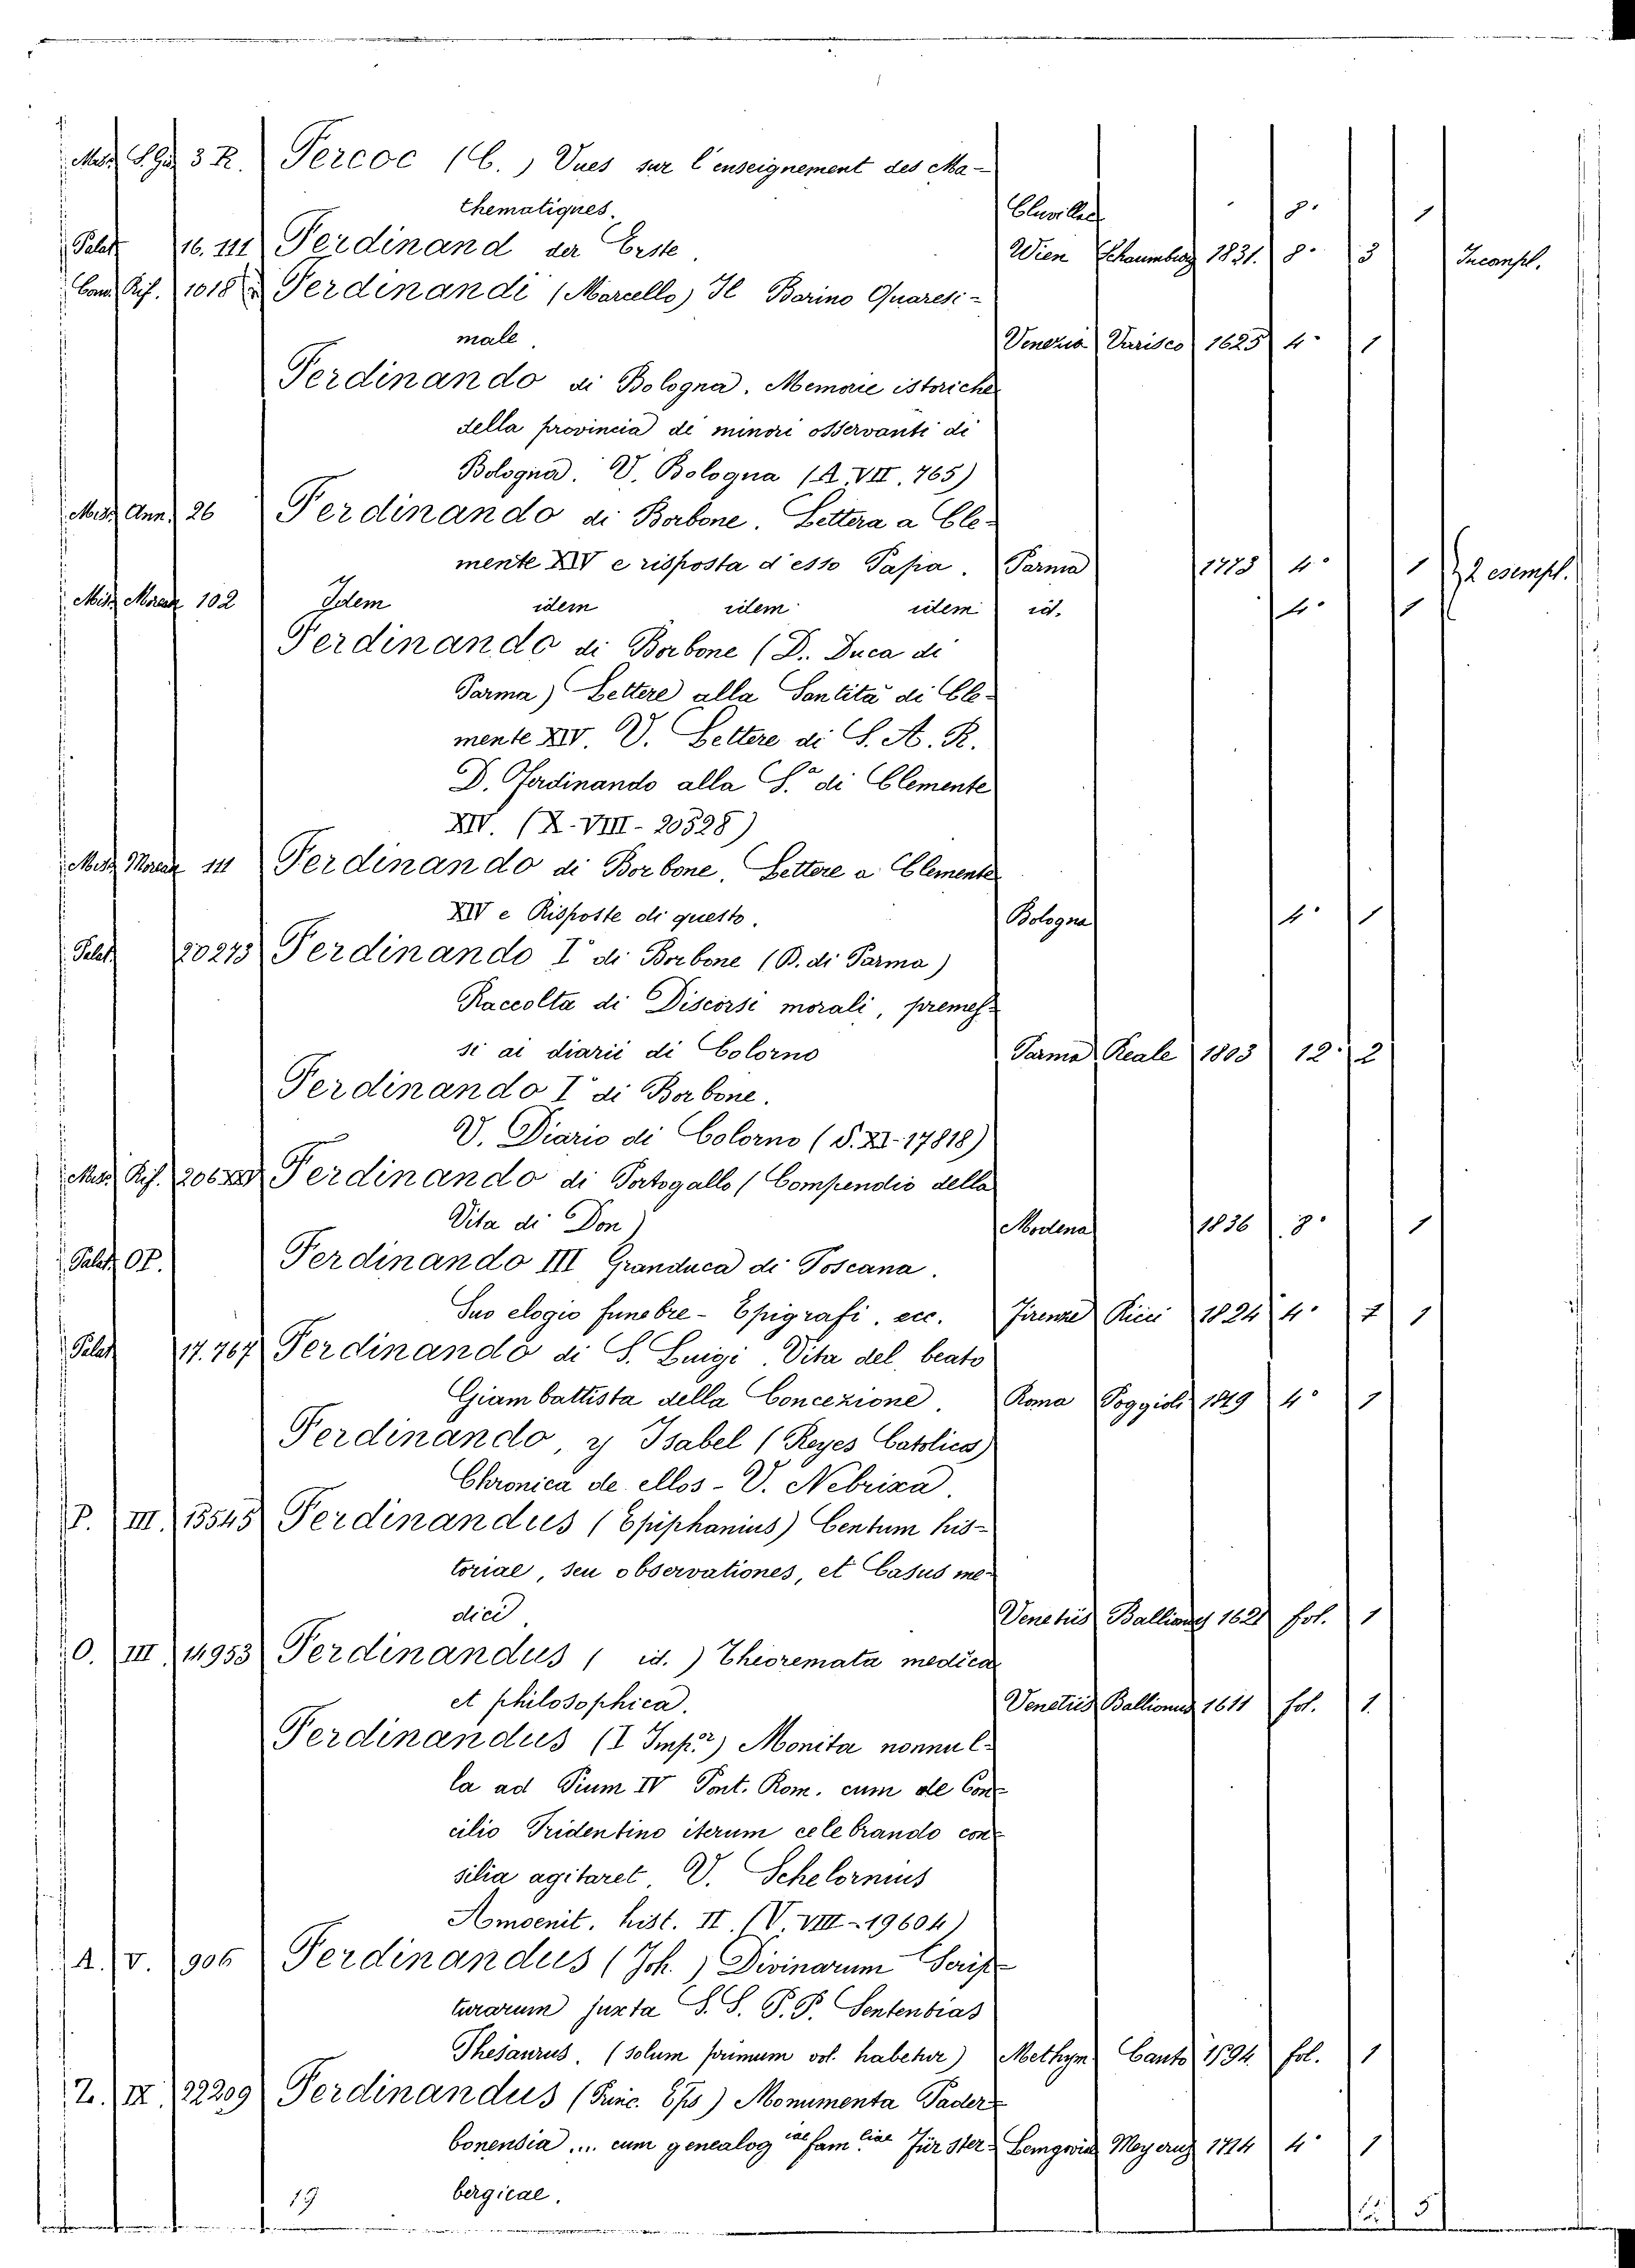 3 R. Fercoc (C.) Vues sur l'enseignement des Ma-
thematiques. 8. 1
Palat 16.111 Ferdinand der Erste. Wien Schaumburg 1831. 8. 3 Incompl.
Cam. Rif. 1018 Ferdinandi (Marcello) Il Barino Quaresi-
male. Venezia Varisco 1625 4. 1
Ferdinando di Bologna. Memorie istoriche
della provincia de minori osservanti di
Bologna. V. Bologna (A. VII. 765)
Misc. Ann. 26 Ferdinando di Borbone. Lettera a Cle-
mente XIV e risposta d'esso Papa. Parma 4. 1 2 esempl.
Misc. Moreali 102 Idem idem idem idem id. 4. 1
Ferdinando di Borbone (D. Duca di
Parma) Lettere alla Santità di Cle-
mente XIV. V. Lettere di S. A. R.
D. Ferdinando alla S.a di Clemente
XIV. (X. VIII - 20528)
Misc. Moreali 111 Ferdinando di Borbone. Lettere a Clemente
XIV e Risposte di questo. Bologna 4. 1
Palat 20273 Ferdinando I di Borbone (D. di Parma)
Raccolta di Discorsi morali, premes-
si ai diarii di Colorno Parma Reale 1803 12. 2
Ferdinando I di Borbone.
V. Diario di Colorno (S. XI - 17818)
Misc. Rif. 206 Ferdinando di Portogallo (Compendio della
Vita di Don) Modena 1836 8. 1
Palat. OP. Ferdinando III Granduca di Toscana.
Suo elogio funebre - Epigrafi. ecc. Firenze Ricci 1824 4. 1
Palat 17.767 Ferdinando di S. Luigi. Vita del beato
Giambattista della Concezione. Roma Poggioli 1819 4. 1
Ferdinando, y Isabel (Reyes Catolicos)
Chronica de ellos - V. Nebrixa.
P. III. 15545 Ferdinandus (Epiphanius) Centum his-
toriae, seu observationes, et Casus me-
dici. Venetiis Ballianus 1621 fol. 1
O. III. 14953 Ferdinandus (id.) Theoremata medica
et philosophica. Venetiis Ballionus 1611 fol. 1.
Ferdinandus (I Imp.r) Monita nonnul-
la ad Pium IV Pont. Rom. cum de Con-
cilio Tridentino iterum celebrando con-
silia agitaret. V. Schelornius
Amoenit. hist. II. (V. VIII - 19604)
A. V. 906 Ferdinandus (Joh.) Divinarum Scrip-
turarum juxta S. S. P. P. Sententias
Thesaurus. (solum primum vol. habetur) Methym. Canto 1594. fol. 1
Z. IX. 22209 Ferdinandus (Princ. Eps) Monumenta Pader-
bonensia .... cum genealog iae familiae Fürster- Lemgoviae Meyerus 1714 4. 1
19 bergicae. 5